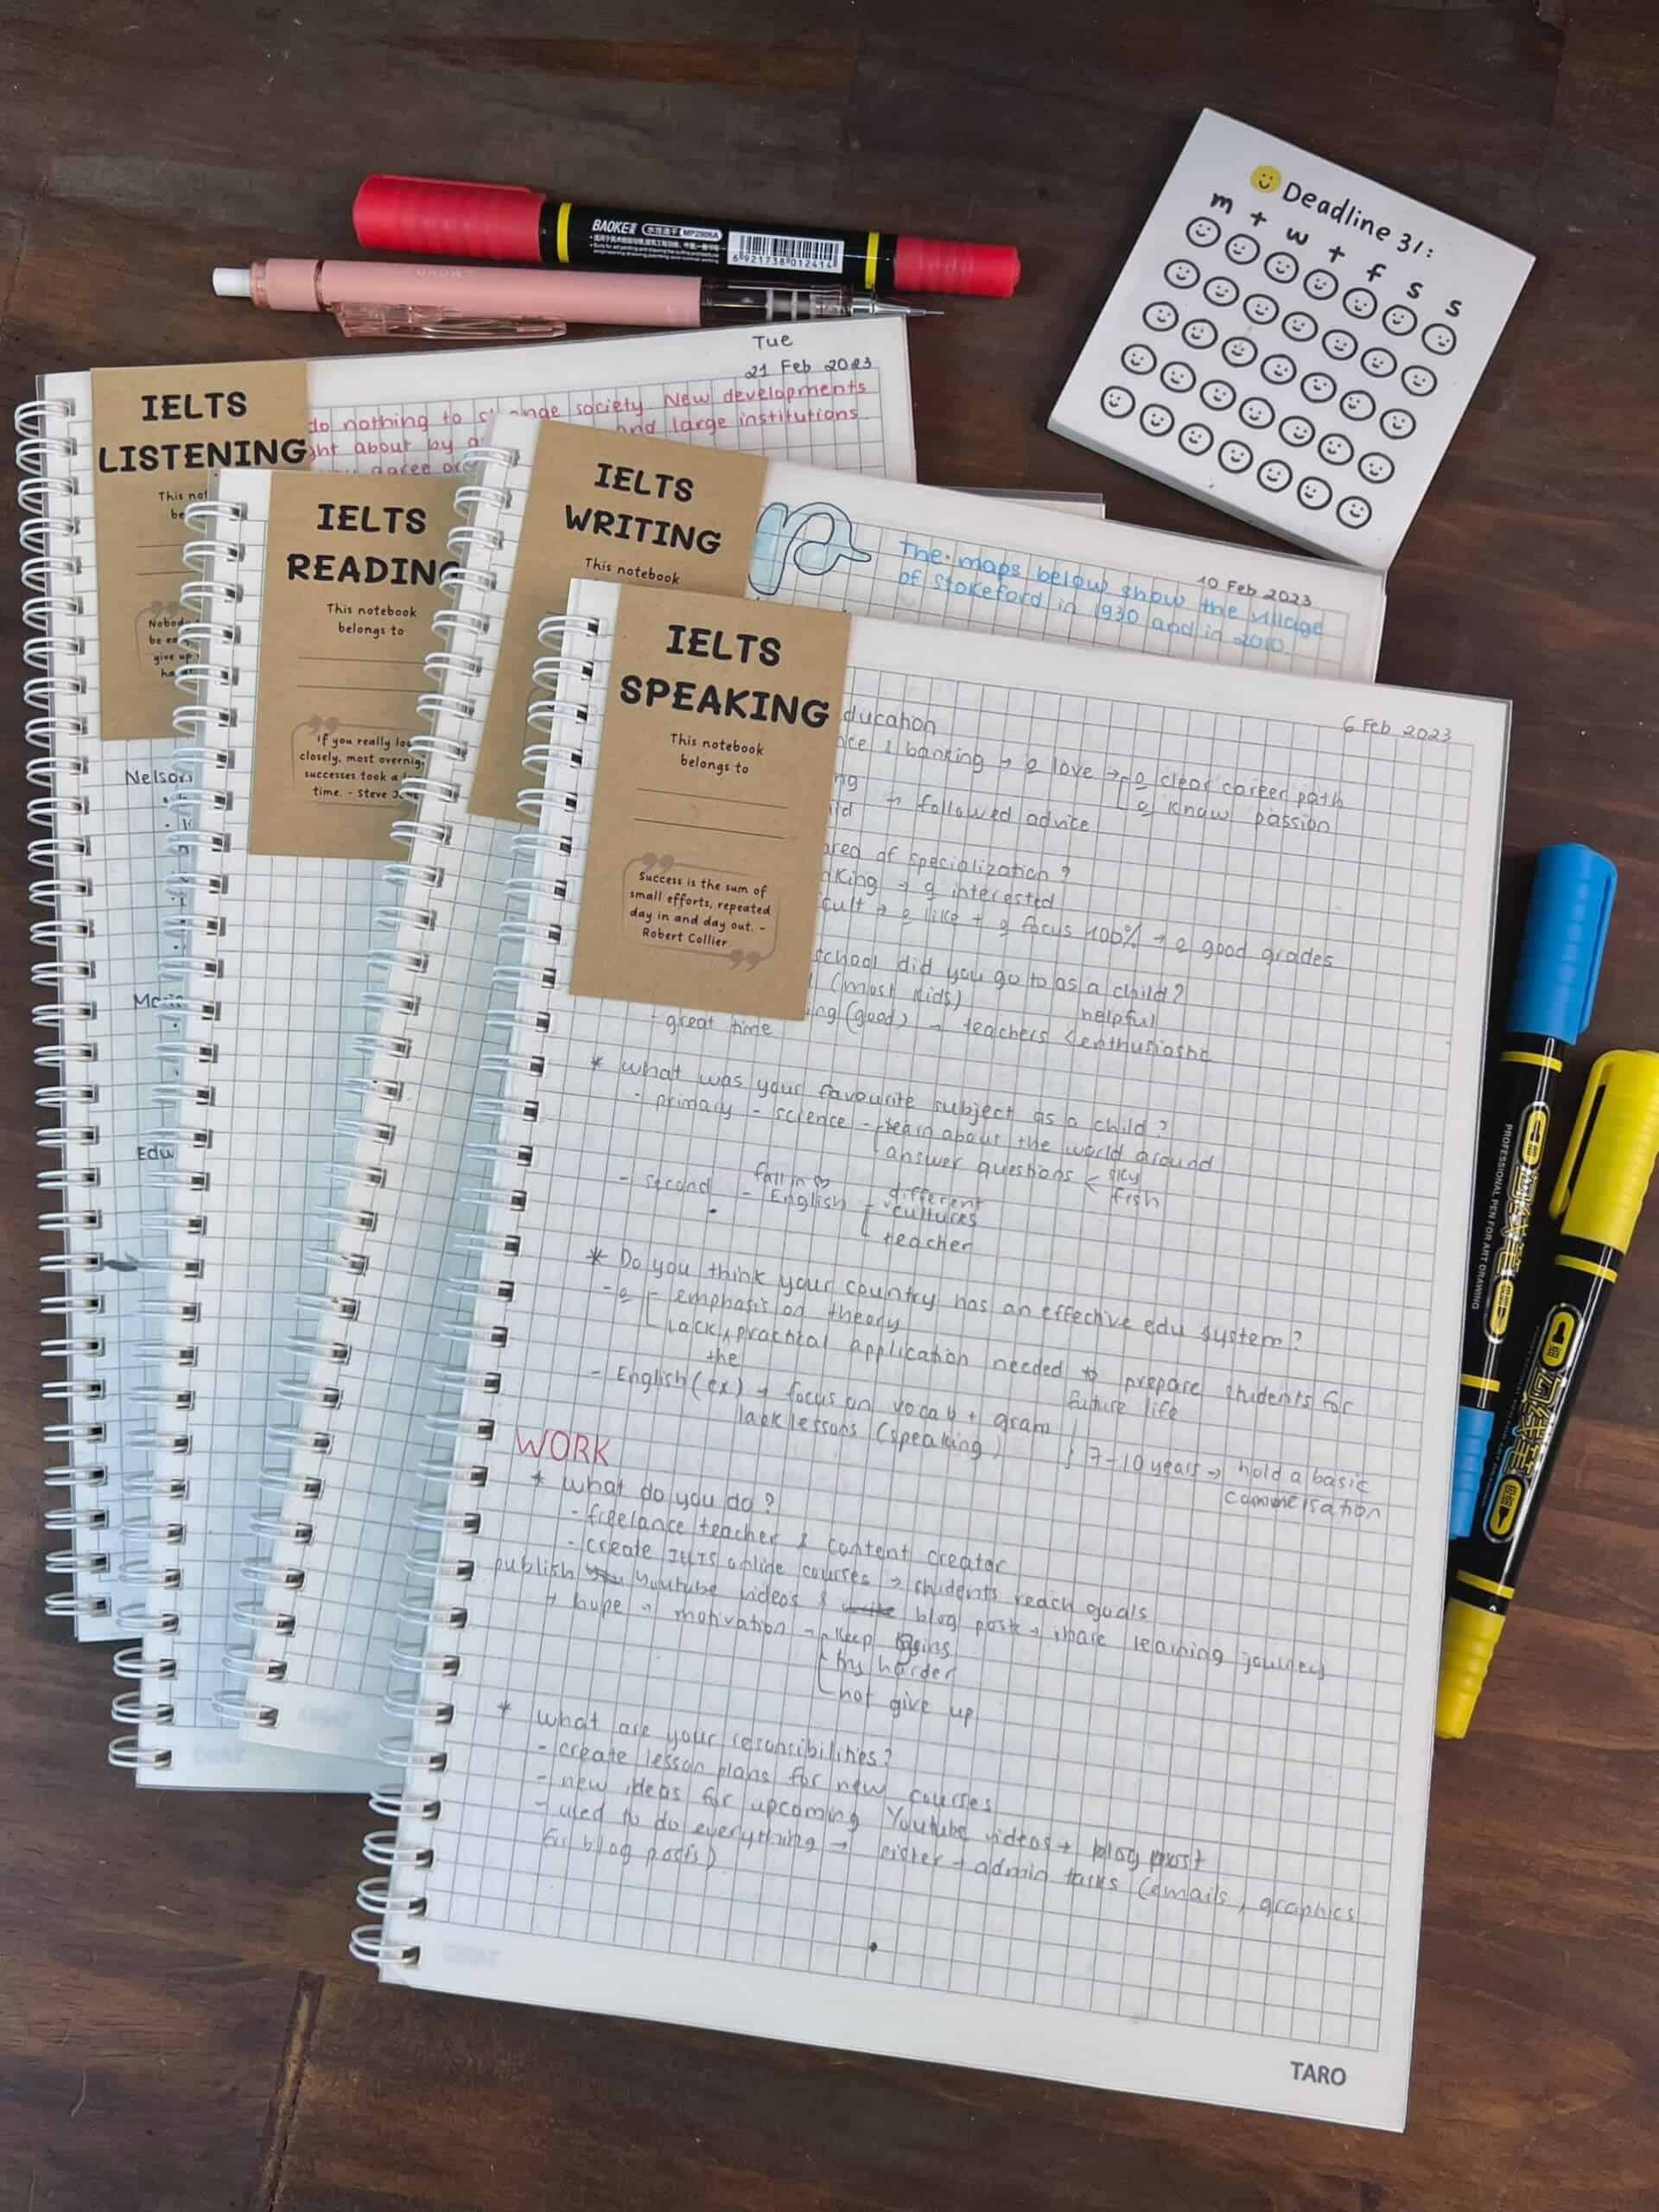 Deadline 31:
m t w t f s s
BAOKE
MP2906A
6 921738 012414
Tue
21 Feb 2023
do nothing to change society. New developments
ght about by and large institutions
agree or
IELTS
LISTENING
This not
be
Nobod
be ea
give up
ha
Nelson
Edu
IELTS
READING
This notebook
belongs to
If you really lo
closely, most overnig
successes took a
time. - Steve
IELTS
WRITING
This notebook
10 Feb 2023
The maps below show the village
of Stokeford in 1930 and in 2010
IELTS
SPEAKING
This notebook
belongs to
Success is the sum of
small efforts, repeated
day in and day out. -
Robert Collier
6 Feb 2023
ducation
nce & banking → love → clear career path
ng know passion
id → followed advice
area of specialization?
nking → interested
icult → like + focus 100% → good grades
school did you go to as a child?
(most kids) helpful
ing (good) → teachers < enthusiastic
- great time
* what was your favourite subject as a child?
- primary - science - learn about the world around
answer questions < sky
fish
fall in
- second - English - different
cultures
teacher
* Do you think your country has an effective edu system?
- emphasis on theory
lack practical application needed to prepare students for
the future life
- English (ex) → focus on vocab + gram
lack lessons (speaking) } 7-10 years → hold a basic
WORK
* what do you do?
- freelance teacher & content creator
- create IELTS online courses → students reach goals
publish Youtube videos & blog posts → share learning journey
→ hope → motivation → keep going
try harder
not give up
* what are your resonsibilities?
- create lesson plans for new courses
- new ideas for upcoming Youtube videos + blog post
- used to do everything → sister → admin tasks (emails, graphics
for blog posts)
TARO
PROFESSIONAL PEN FOR ART DRAWING